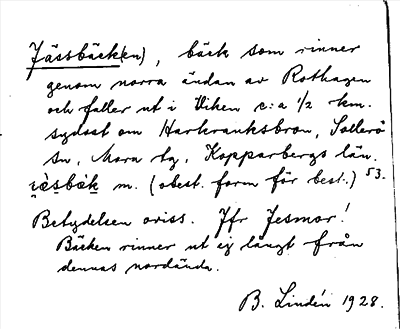 Jässbäck(en), bäck som rinner
genom norra ändan av Rothagen
och faller ut i Viken c:a 1/2 km.
sydost om Harkranksbron, Sollerö
sn, Mora tg, Kopparbergs län.
m. (obest. form för best.) 53.
Betydelsen oviss. Jfr Jesmor!
Bäcken rinner ut ej långt från
dennas nordända.
B. Lindén 1928.